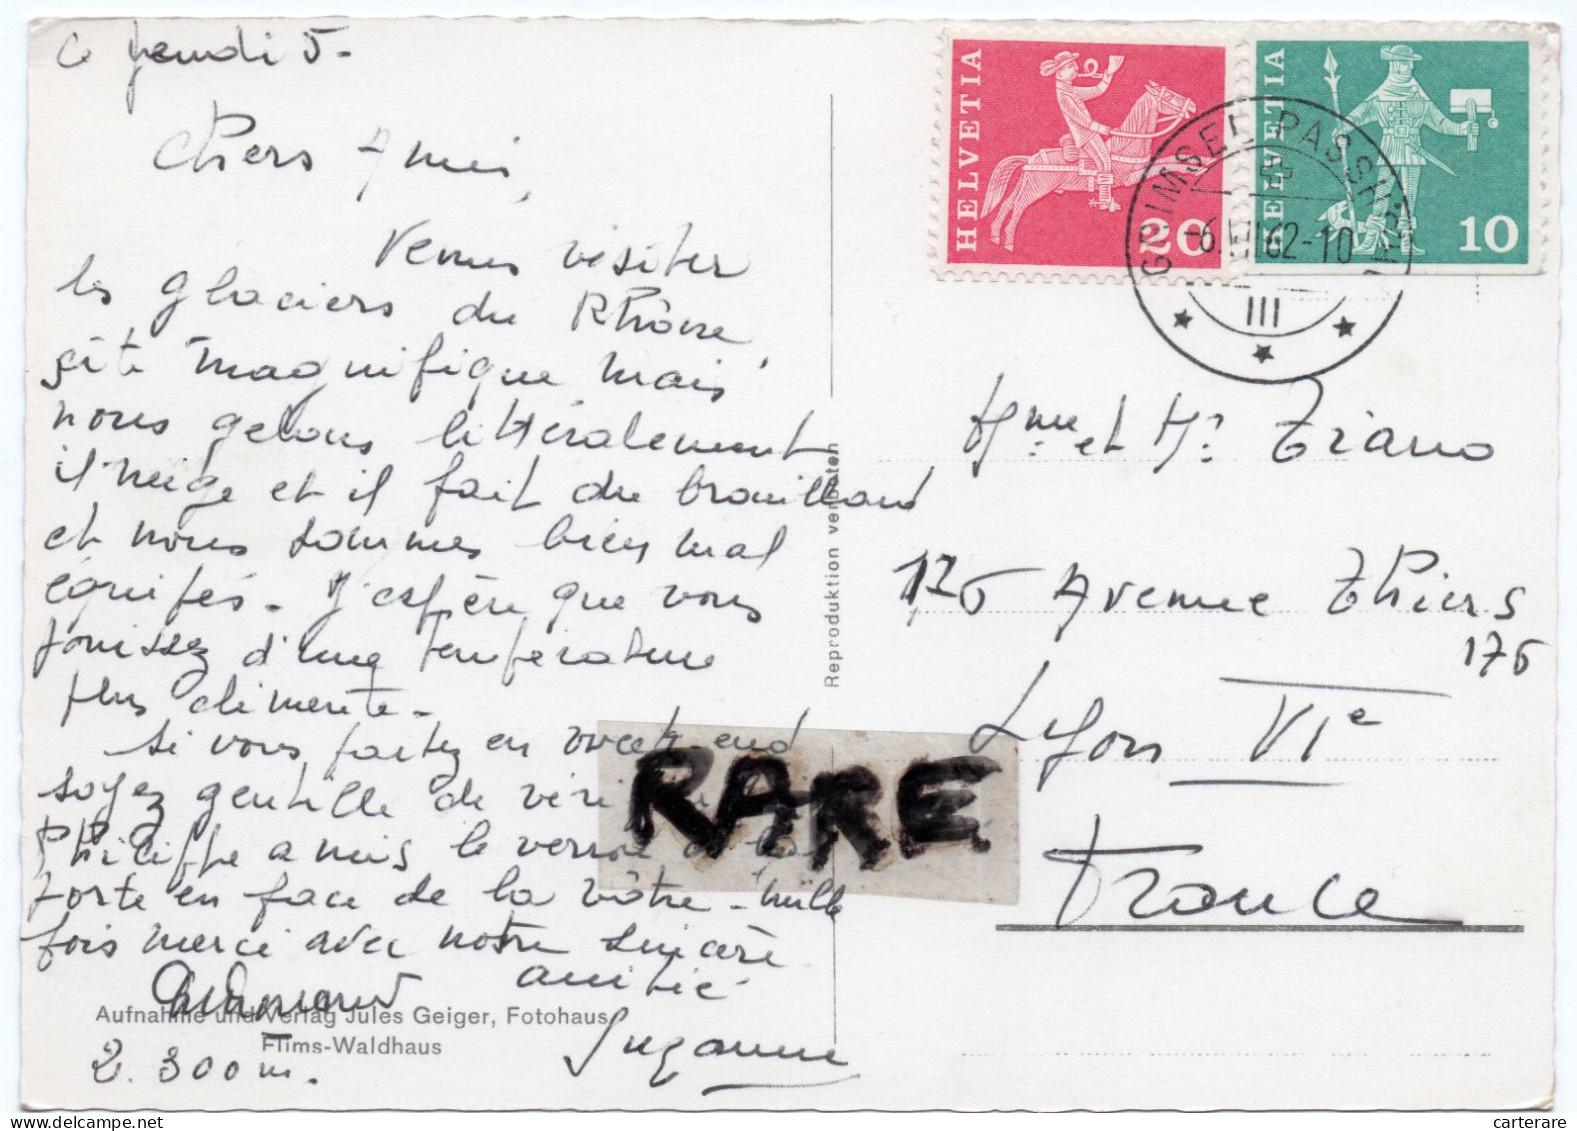 Ce Jeudi 5-
Chers Amis,
Venus visiter
les glaciers du Rhône,
site magnifique mais
nous gelons littéralement
il neige et il fait du brouillard
et nous sommes bien mal
équipés. J'espère que vous
jouissez d'une température
plus clémente.
Si vous partez en week-end
soyez gentille de
Philippe a mis le verrou
porte en face de la vôtre - Mille
fois merci avec notre sincère
amitié
Suzanne
2.300 m.
Aufnahme und Verlag Jules Geiger, Fotohaus
Flims-Waldhaus
Reproduktion verboten
RARE
HELVETIA
20
HELVETIA
10
GRIMSEL PASSHÖHE
-6.VII.62-10
III
Mme et Mr Tiano
175 Avenue Thiers
175
Lyon VIe
France
carterare